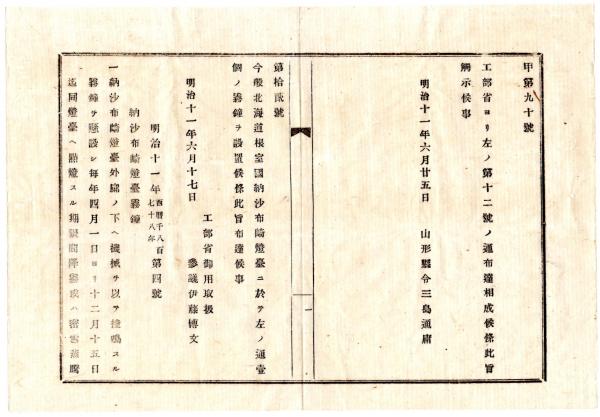 甲第九十號
工部省ヨリ左ノ第十二號ノ通布達相成候條此旨
觸示候事
明治十一年六月廿五日
山形縣令三島通庸
第拾貳號
今般北海道根室國納沙布崎燈臺ニ於テ左ノ通壹
個ノ霧鐘ヲ設置候條此旨布達候事
工部省御用取扱
明治十一年六月十七日
參議伊藤博文
明治十一年西曆千八百七十八年第四號
納沙布崎燈臺霧鐘
一納沙布崎燈臺外廓ノ下ヘ機械ヲ以テ撞鳴スル
霧鐘ヲ懸設シ每年四月一日ヨリ十二月十五日
迄同燈臺ヘ點燈スル期限間降雪或ハ密雲蒸騰
一